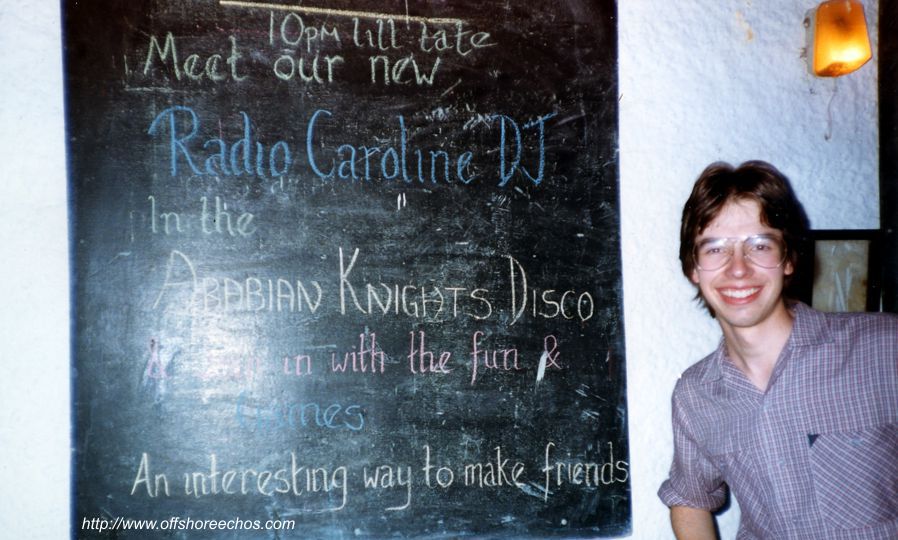 10pm till late
Meet our new
Radio Caroline DJ
In the
ARABIAN KNIGHTS DISCO
& in with the fun &
Games
An interesting way to make friends
N
http://www.offshoreechos.com